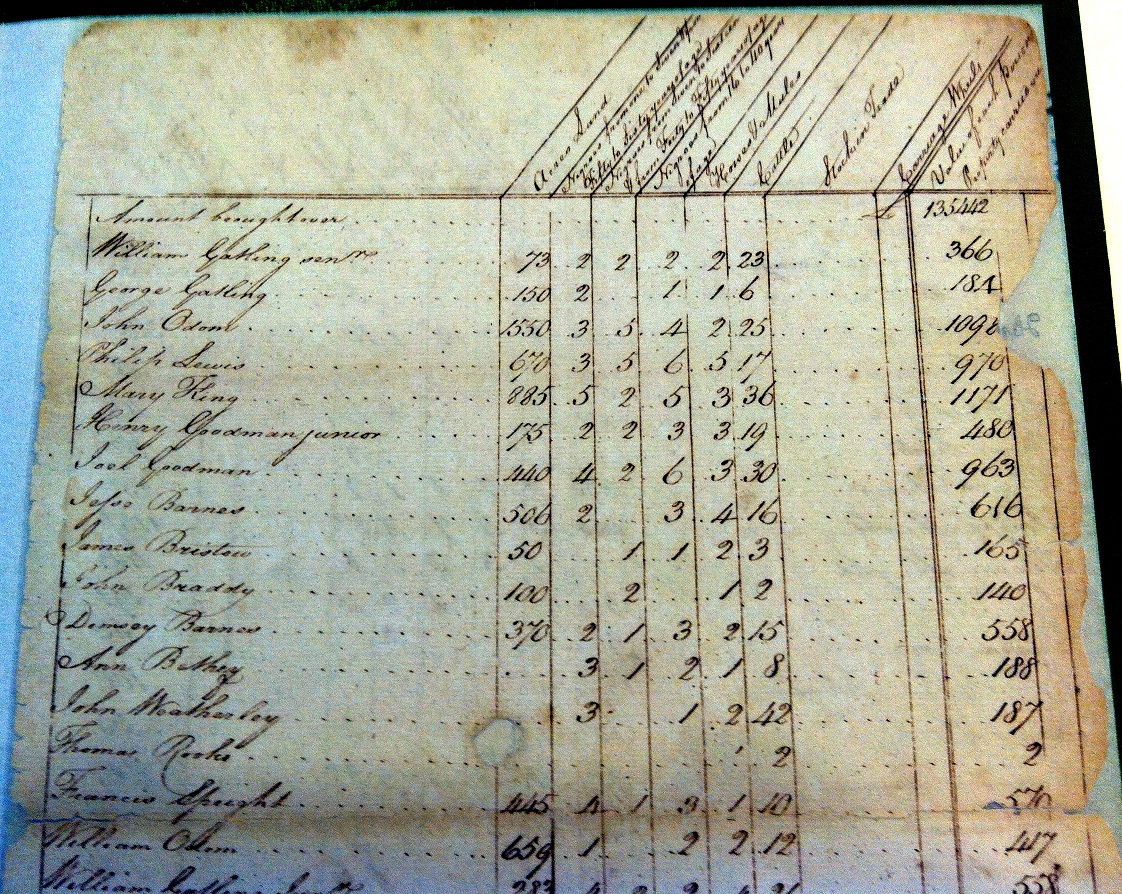 Acres Land
Negroes from one to Seven &
Fifty to Sixty years of age
Negroes from Seven to Sixteen
& from Forty to Fifty years of age
Negroes from 16 to 40 years
of age
Horses & Mules
Cattle
Stock in Trade
Carriage Wheels
Value of each persons
Property carried out
Amount brought over 135442
William Gatling senr. 73 2 2 2 2 23 366
George Gatling 150 2 1 1 6 184
John Odom 1550 3 5 4 2 25 1098
Philip Lewis 670 3 5 6 5 17 976
Mary King 885 5 2 5 3 36 1171
Henry Goodman junior 175 2 2 3 3 19 480
Joel Goodman 440 4 2 6 3 30 963
Jesse Barnes 506 2 3 4 16 616
James Bristow 50 1 1 2 3 165
John Braddy 100 2 1 2 140
Demsey Barnes 370 2 1 3 2 15 558
Ann Bethey 3 1 2 1 8 188
John Weatherley 3 1 2 42 187
Thomas Rooks 2 2
Francis Speight 445 4 1 3 1 10 570
William Odum 659 1 2 2 12 417
William Gatling